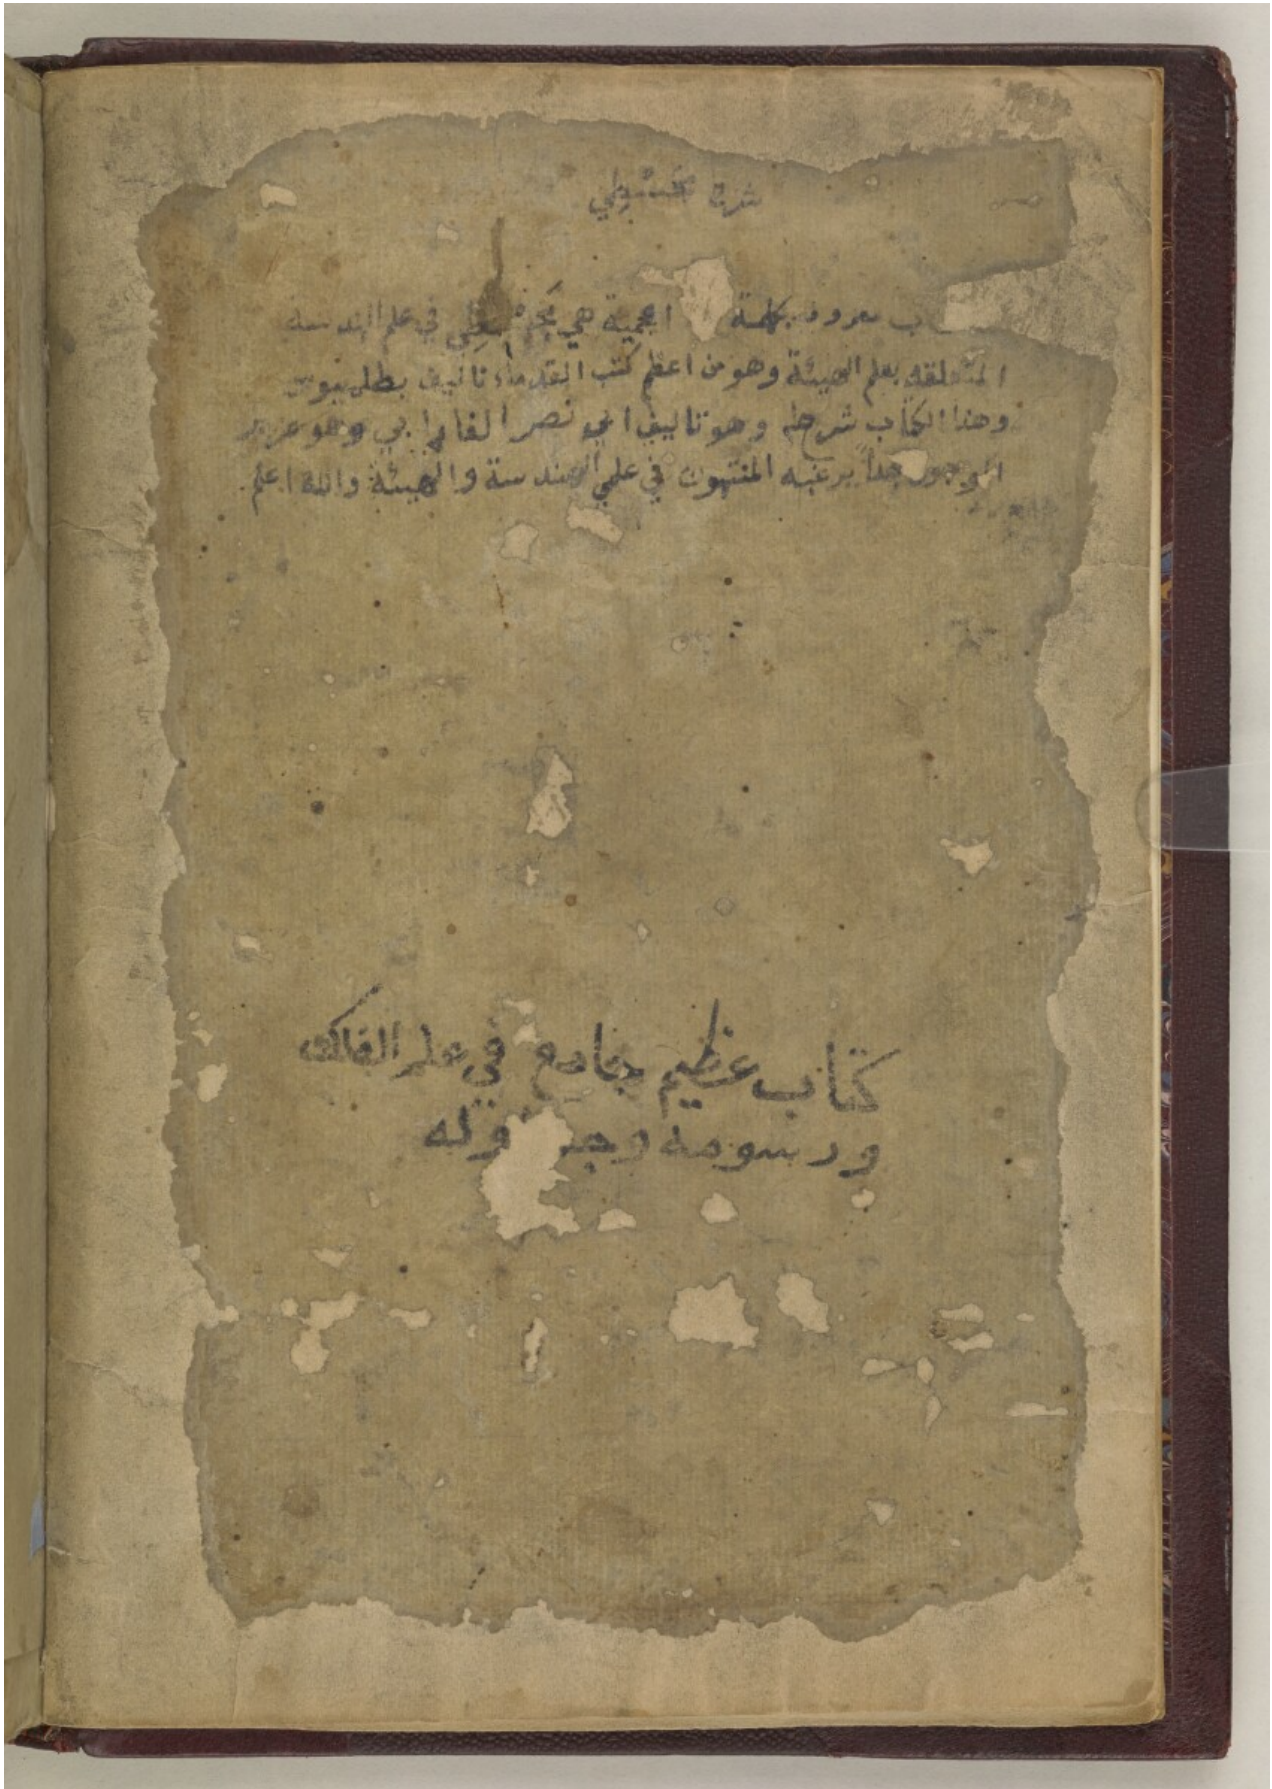 شرح مجسطي
ب معروف بكلمة اعجمية هي في علم الهندسة
المتعلقه بعلم الهيئة وهو من اعظم كتب القدماء تاليف بطلميوس
وهذا الكتاب شرحه وهو تاليف ابي نصر الفارابي وهو عزيز
الموجود جداً يرغبه المنتهون في علمي الهندسة والهيئة والله اعلم
كتاب عظيم جامع في علم الفلك
ورسومه وجداوله